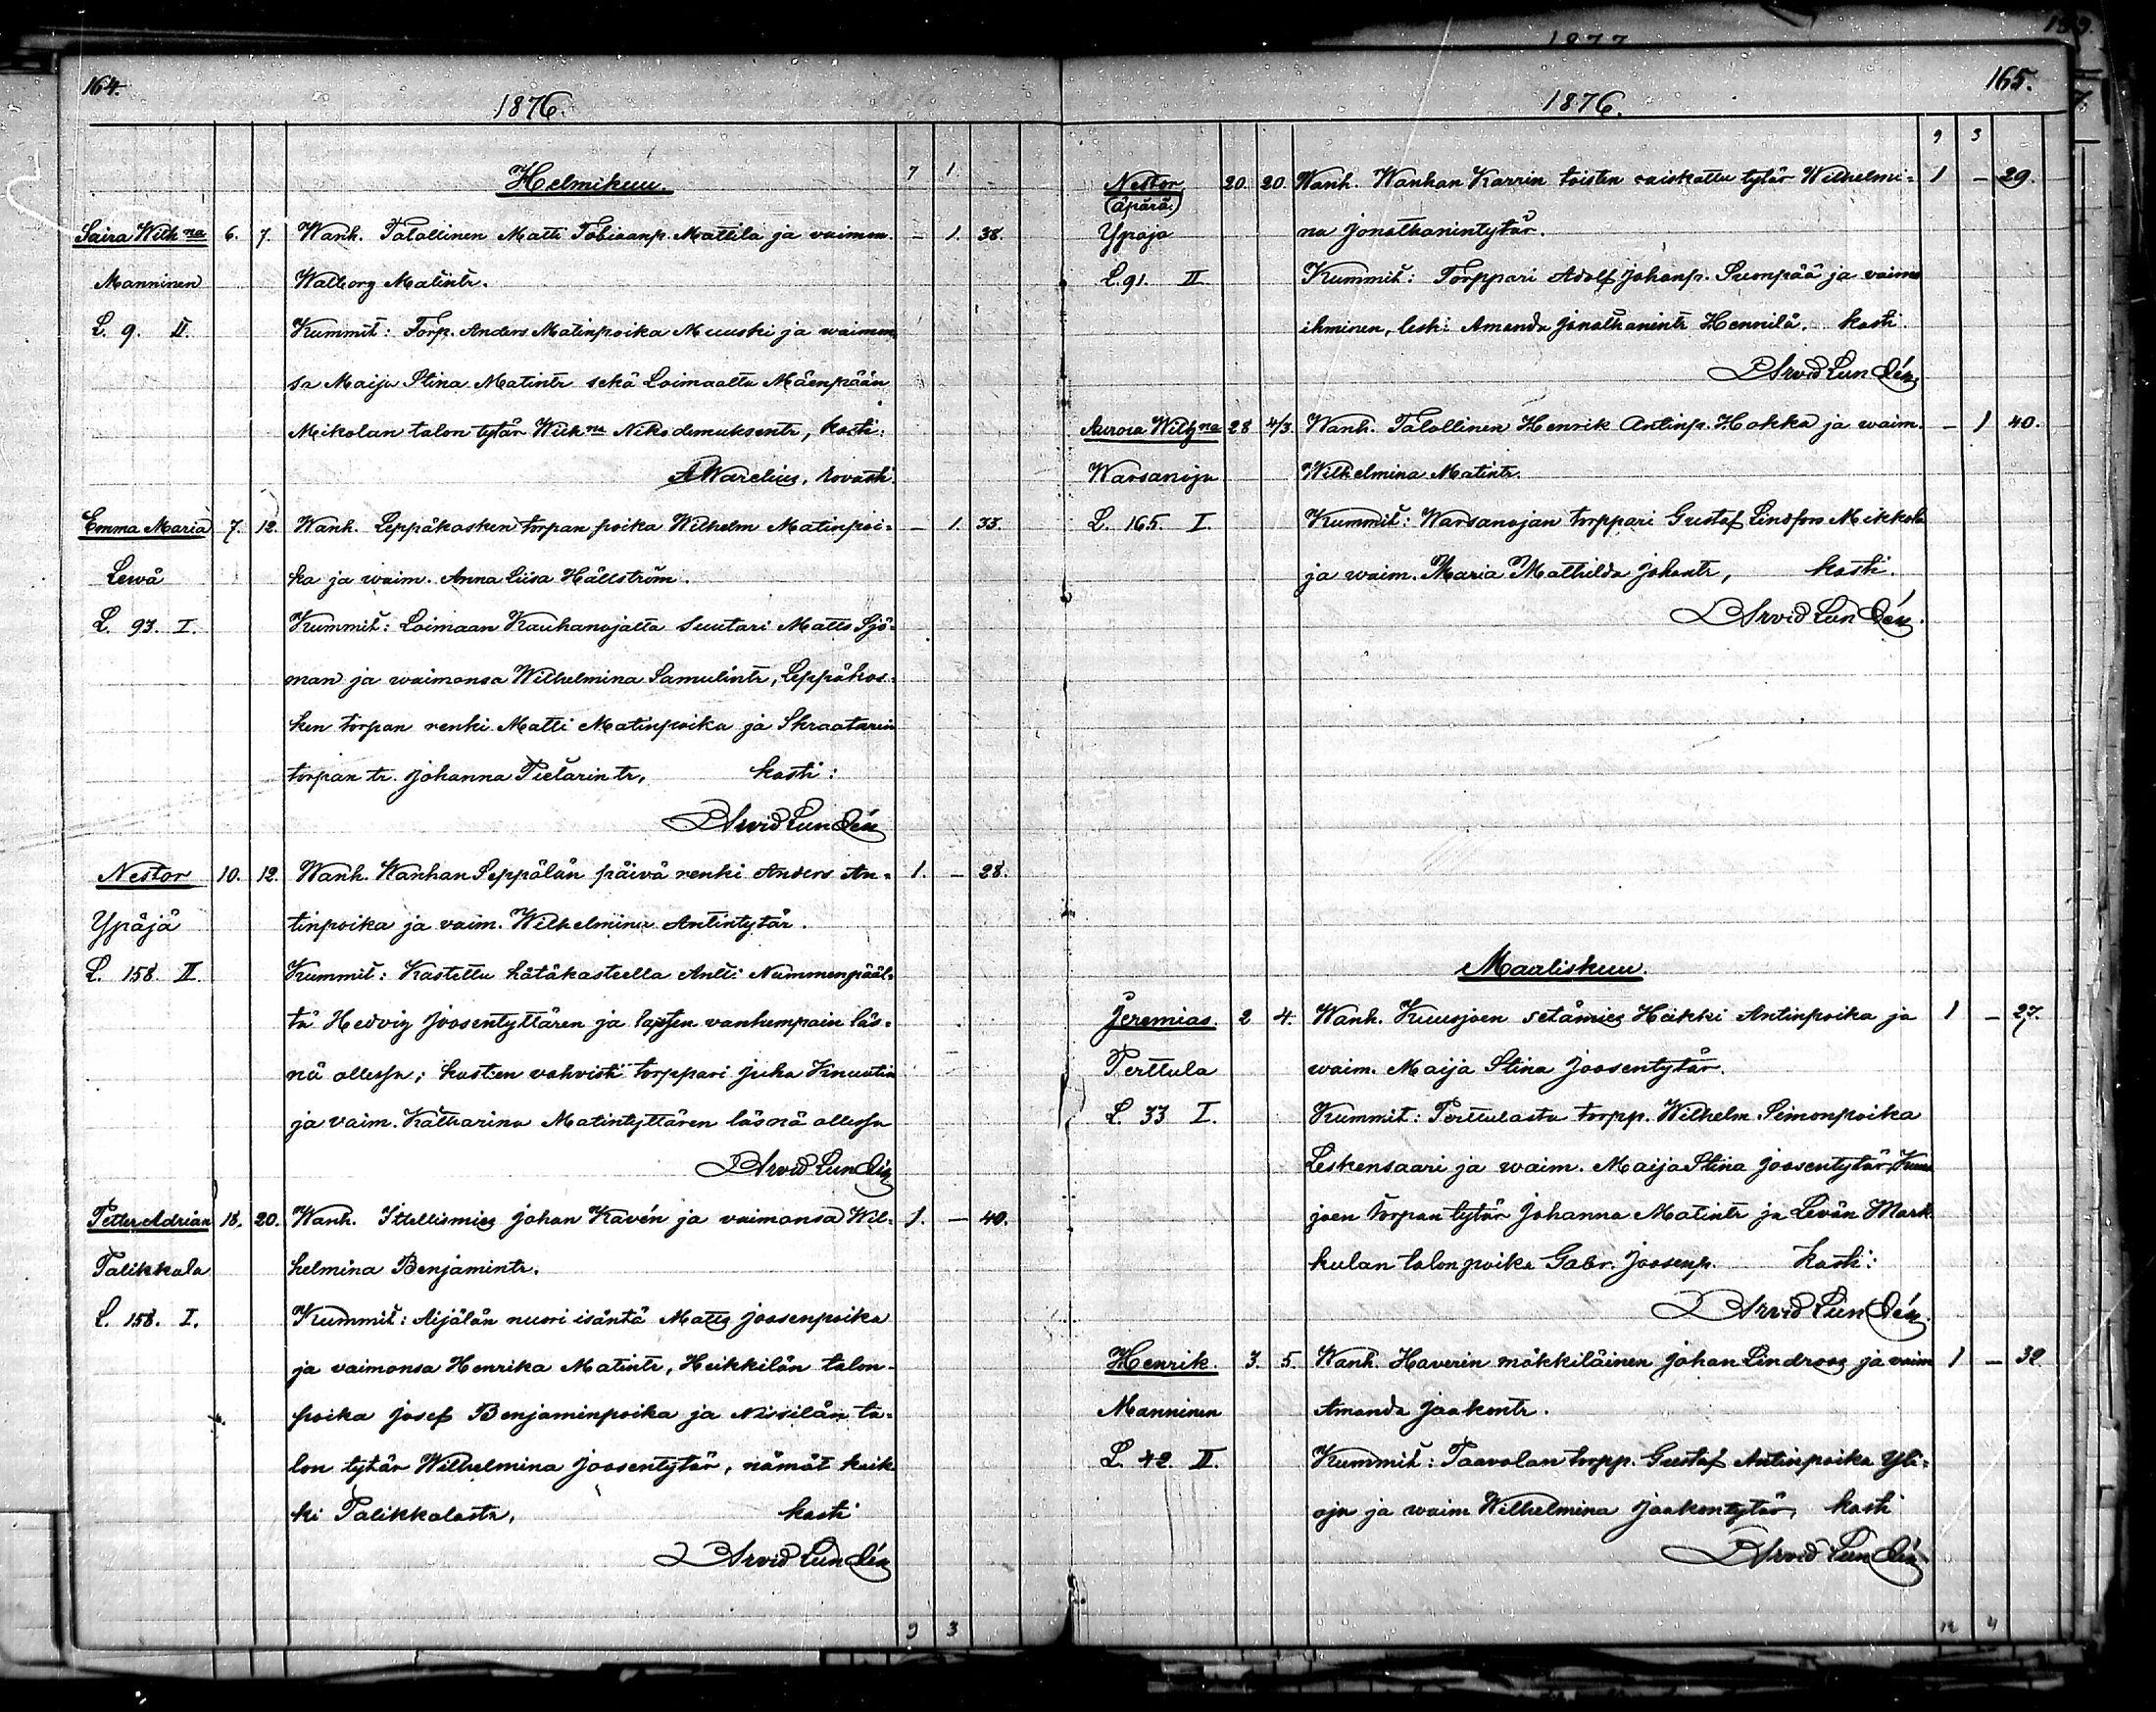 164.
1876.
Helmikuu. 7 1
Saira Wilhna 6. 7. Wanh. Talollinen Matti Tobiaanp. Mattila ja vaimon — 1. 38.
Manninen Walborg Matintr.
L. 9. II. Kummit: Torp. Anders Matinpoika Muuski ja waimon
sa Maija Stina Matintr sekä Loimaalta Mäenpään
Mikolan talon tytär Wilhna Nikodemuksentr, kasti:
A Warelius, rovasti
Emma Maria 7. 12. Wanh. Leppäkosken torpan poika Wilhelm Matinpoi= — 1. 33.
Lewä ka ja waim. Anna Liisa Hällström.
L. 93. I. Kummit: Loimaan Kauhanojalta suutari Matts Sjö=
man ja waimonsa Wilhelmina Samulintr, Leppäkos=
ken torpan renki Matti Matinpoika ja Skraatarin
torpan tr. Johanna Pietarintr, kasti:
Arvid Lundén
Nestor 10. 12. Wanh. Wanhan Seppälän päivä renki Anders An= 1. — 28.
Ypäjä tinpoika ja vaim. Wilhelmina Antintytär.
L. 158. II. Kummit: Kastettu hätäkasteella Antti Nummenpääl=
tä Hedvig Joosentyttären ja lapsen vanhempain läs=
nä ollessa; kasteen vahvisti torppari Juha Knuutin
ja vaim. Katharina Matintyttären läsnä ollessa
Arvid Lundén
Petter Adrian 18. 20. Wanh. Itsellismies Johan Kavén ja vaimonsa Wil= 1. — 40.
Palikkala helmina Benjamintr.
L. 158. I. Kummit: Äijälän nuori isäntä Matts Joosenpoika
ja vaimonsa Henrika Matintr, Heikkilän talon=
poika Josef Benjaminpoika ja Nissilän ta=
lon tytär Wilhelmina Joosentytär, nämät kaik
ki Palikkalasta, kasti
Arvid Lundén
9 3
1877
165.
1876.
9 3
Nestor 20. 20. Wanh. Wanhan Karrin toisten raiskattu tytär Wilhelmi= 1 — 29.
(äpärä.)
Ypäjä na Jonathanintytär.
L. 91. II Kummit: Torppari Adolf Johanp. Suonpää ja vaimo
ihminen, leski Amanda Jonathanintr Hennilä. kasti.
Arvid Lundén
Aurora Wilhna 28 4/3. Wanh. Talollinen Henrik Antinp. Hakka ja waim. — 1 40.
Warsanoja Wilhelmina Matintr.
L. 165. I. Kummit: Warsanojan torppari Gustaf Lindfors Mikkola
ja waim. Maria Mathilda Johantr, kasti.
Arvid Lundén.
Maaliskuu.
Jeremias. 2 4. Wanh. Kuusjoen setämies Heikki Antinpoika ja 1 — 27.
Perttula waim. Maija Stina Joosentytär.
L. 33 I. Kummit: Perttulasta torpp. Wilhelm Simonpoika
Leskensaari ja waim. Maija Stina Joosentytär, Kuus
joen torpan tytär Johanna Matintr ja Levän Mark
kulan talonpoika Gabr. Joosenp. kasti:
Arvid Lundén.
Henrik. 3. 5. Wanh. Haverin mökkiläinen Johan Lindroos ja vaim 1 — 32
Manninen Amanda Jaakontr.
L. 42. II. Kummit: Paavolan torpp. Gustaf Antinpoika Yli=
oja ja waim Wilhelmina Jaakontytär, kasti
Arvid Lundén
12 4